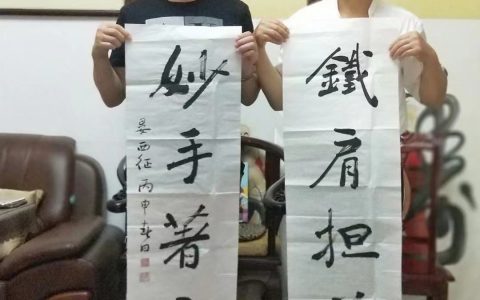 鐵肩担
妙手著
晏西征 丙申春日